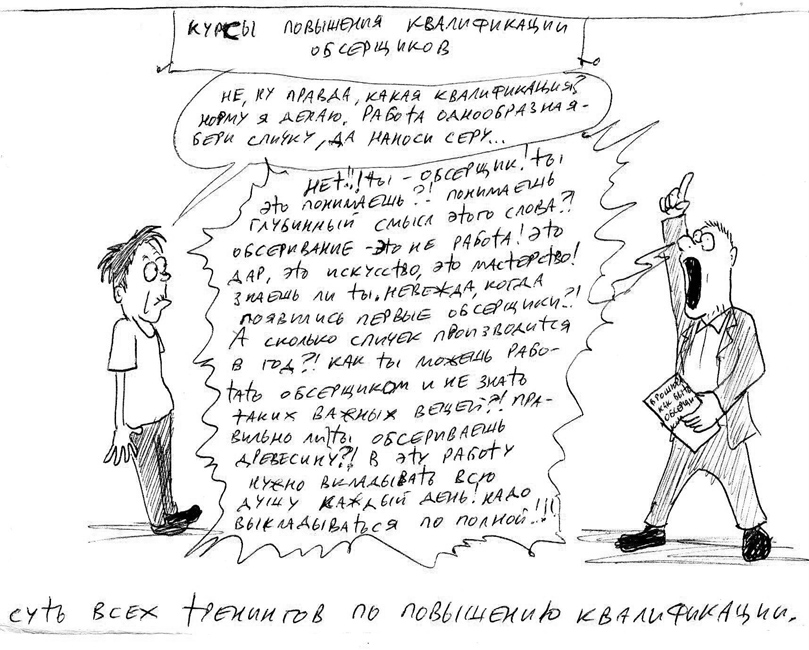 КУРСЫ ПОВЫШЕНИЯ КВАЛИФИКАЦИИ
ОБСЕРЩИКОВ
НЕ, НУ ПРАВДА, КАКАЯ КВАЛИФИКАЦИЯ?
НОРМУ Я ДЕЛАЮ. РАБОТА ОДНООБРАЗНАЯ-
БЕРИ СПИЧКУ, ДА НАНОСИ СЕРУ...
НЕТ!!! ТЫ - ОБСЕРЩИК! ТЫ
ЭТО ПОНИМАЕШЬ?! ПОНИМАЕШЬ
ГЛУБИННЫЙ СМЫСЛ ЭТОГО СЛОВА?!
ОБСЕРИВАНИЕ - ЭТО НЕ РАБОТА! ЭТО
ДАР, ЭТО ИСКУССТВО, ЭТО МАСТЕРСТВО!
ЗНАЕШЬ ЛИ ТЫ, НЕВЕЖДА, КОГДА
ПОЯВИЛИСЬ ПЕРВЫЕ ОБСЕРЩИКИ?!
А СКОЛЬКО СПИЧЕК ПРОИЗВОДИТСЯ
В ГОД?! КАК ТЫ МОЖЕШЬ РАБО-
ТАТЬ ОБСЕРЩИКОМ И НЕ ЗНАТЬ
ТАКИХ ВАЖНЫХ ВЕЩЕЙ?! ПРА-
ВИЛЬНО ЛИ ТЫ ОБСЕРИВАЕШЬ
ДРЕВЕСИНУ?! В ЭТУ РАБОТУ
НУЖНО ВКЛАДЫВАТЬ ВСЮ
ДУШУ КАЖДЫЙ ДЕНЬ! НАДО
ВЫКЛАДЫВАТЬСЯ ПО ПОЛНОЙ...!!!
КАК
СУТЬ ВСЕХ ТРЕНИНГОВ ПО ПОВЫШЕНИЮ КВАЛИФИКАЦИИ.